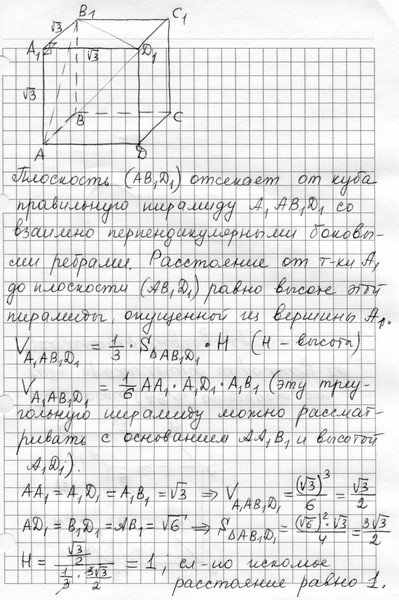 B₁ C₁
√3
A₁ √3 D₁
√3
B C
A D
Плоскость (AB₁D₁) отсекает от куба
правильную пирамиду A₁AB₁D₁ со
взаимно перпендикулярными боковы-
ми ребрами. Расстояние от т-ки A₁
до плоскости (AB₁D₁) равно высоте этой
пирамиды, опущенной из вершины A₁.
V_{A₁AB₁D₁} = 1/3 · S_{ΔAB₁D₁} · H (H - высота)
V_{A₁AB₁D₁} = 1/6 AA₁ · A₁D₁ · A₁B₁ (эту треу-
гольную пирамиду можно рассмат-
ривать с основанием AA₁B₁ и высотой
A₁D₁).
AA₁ = A₁D₁ = A₁B₁ = √3 ⇒ V_{A₁AB₁D₁} = (√3)³/6 = √3/2
AD₁ = B₁D₁ = AB₁ = √6 ⇒ S_{ΔAB₁D₁} = (√6)²·√3/4 = 3√3/2
H = (√3/2)/(1/3 · 3√3/2) = 1, сл-но искомое
расстояние равно 1.